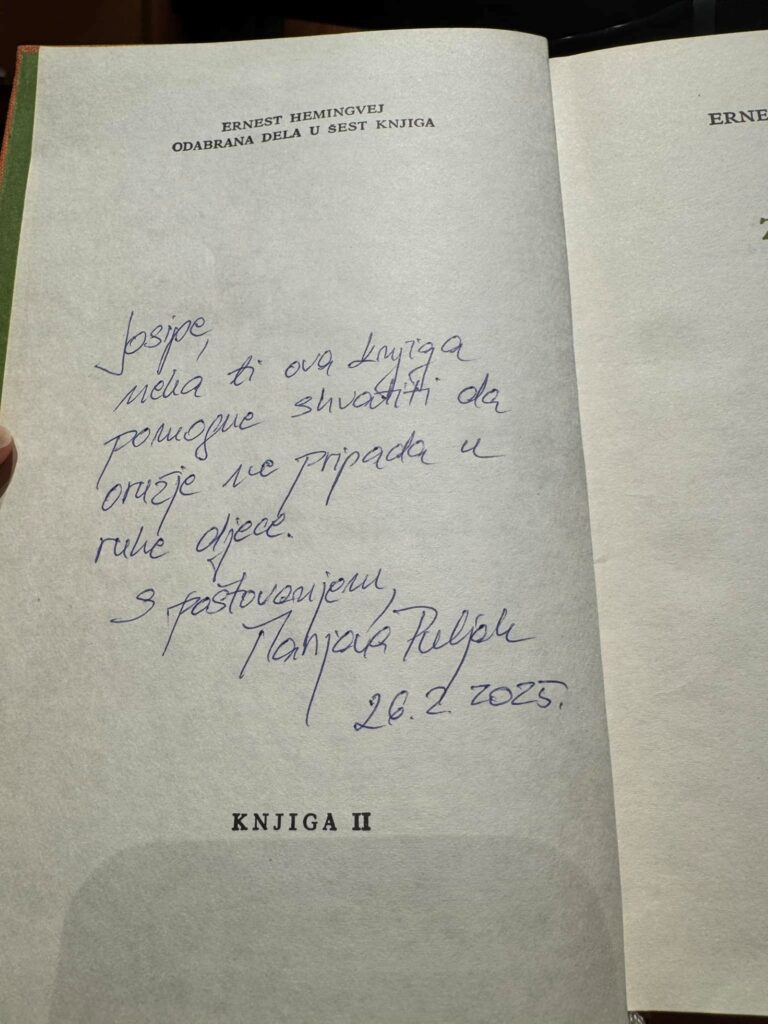 ERNEST HEMINGVEJ
ODABRANA DELA U ŠEST KNJIGA
Josipe,
neka ti ova knjiga
pomogne shvatiti da
oružje ne pripada u
ruke djece.
S poštovanjem,
Marijana Puljak
26.2.2025.
KNJIGA II
ERNE